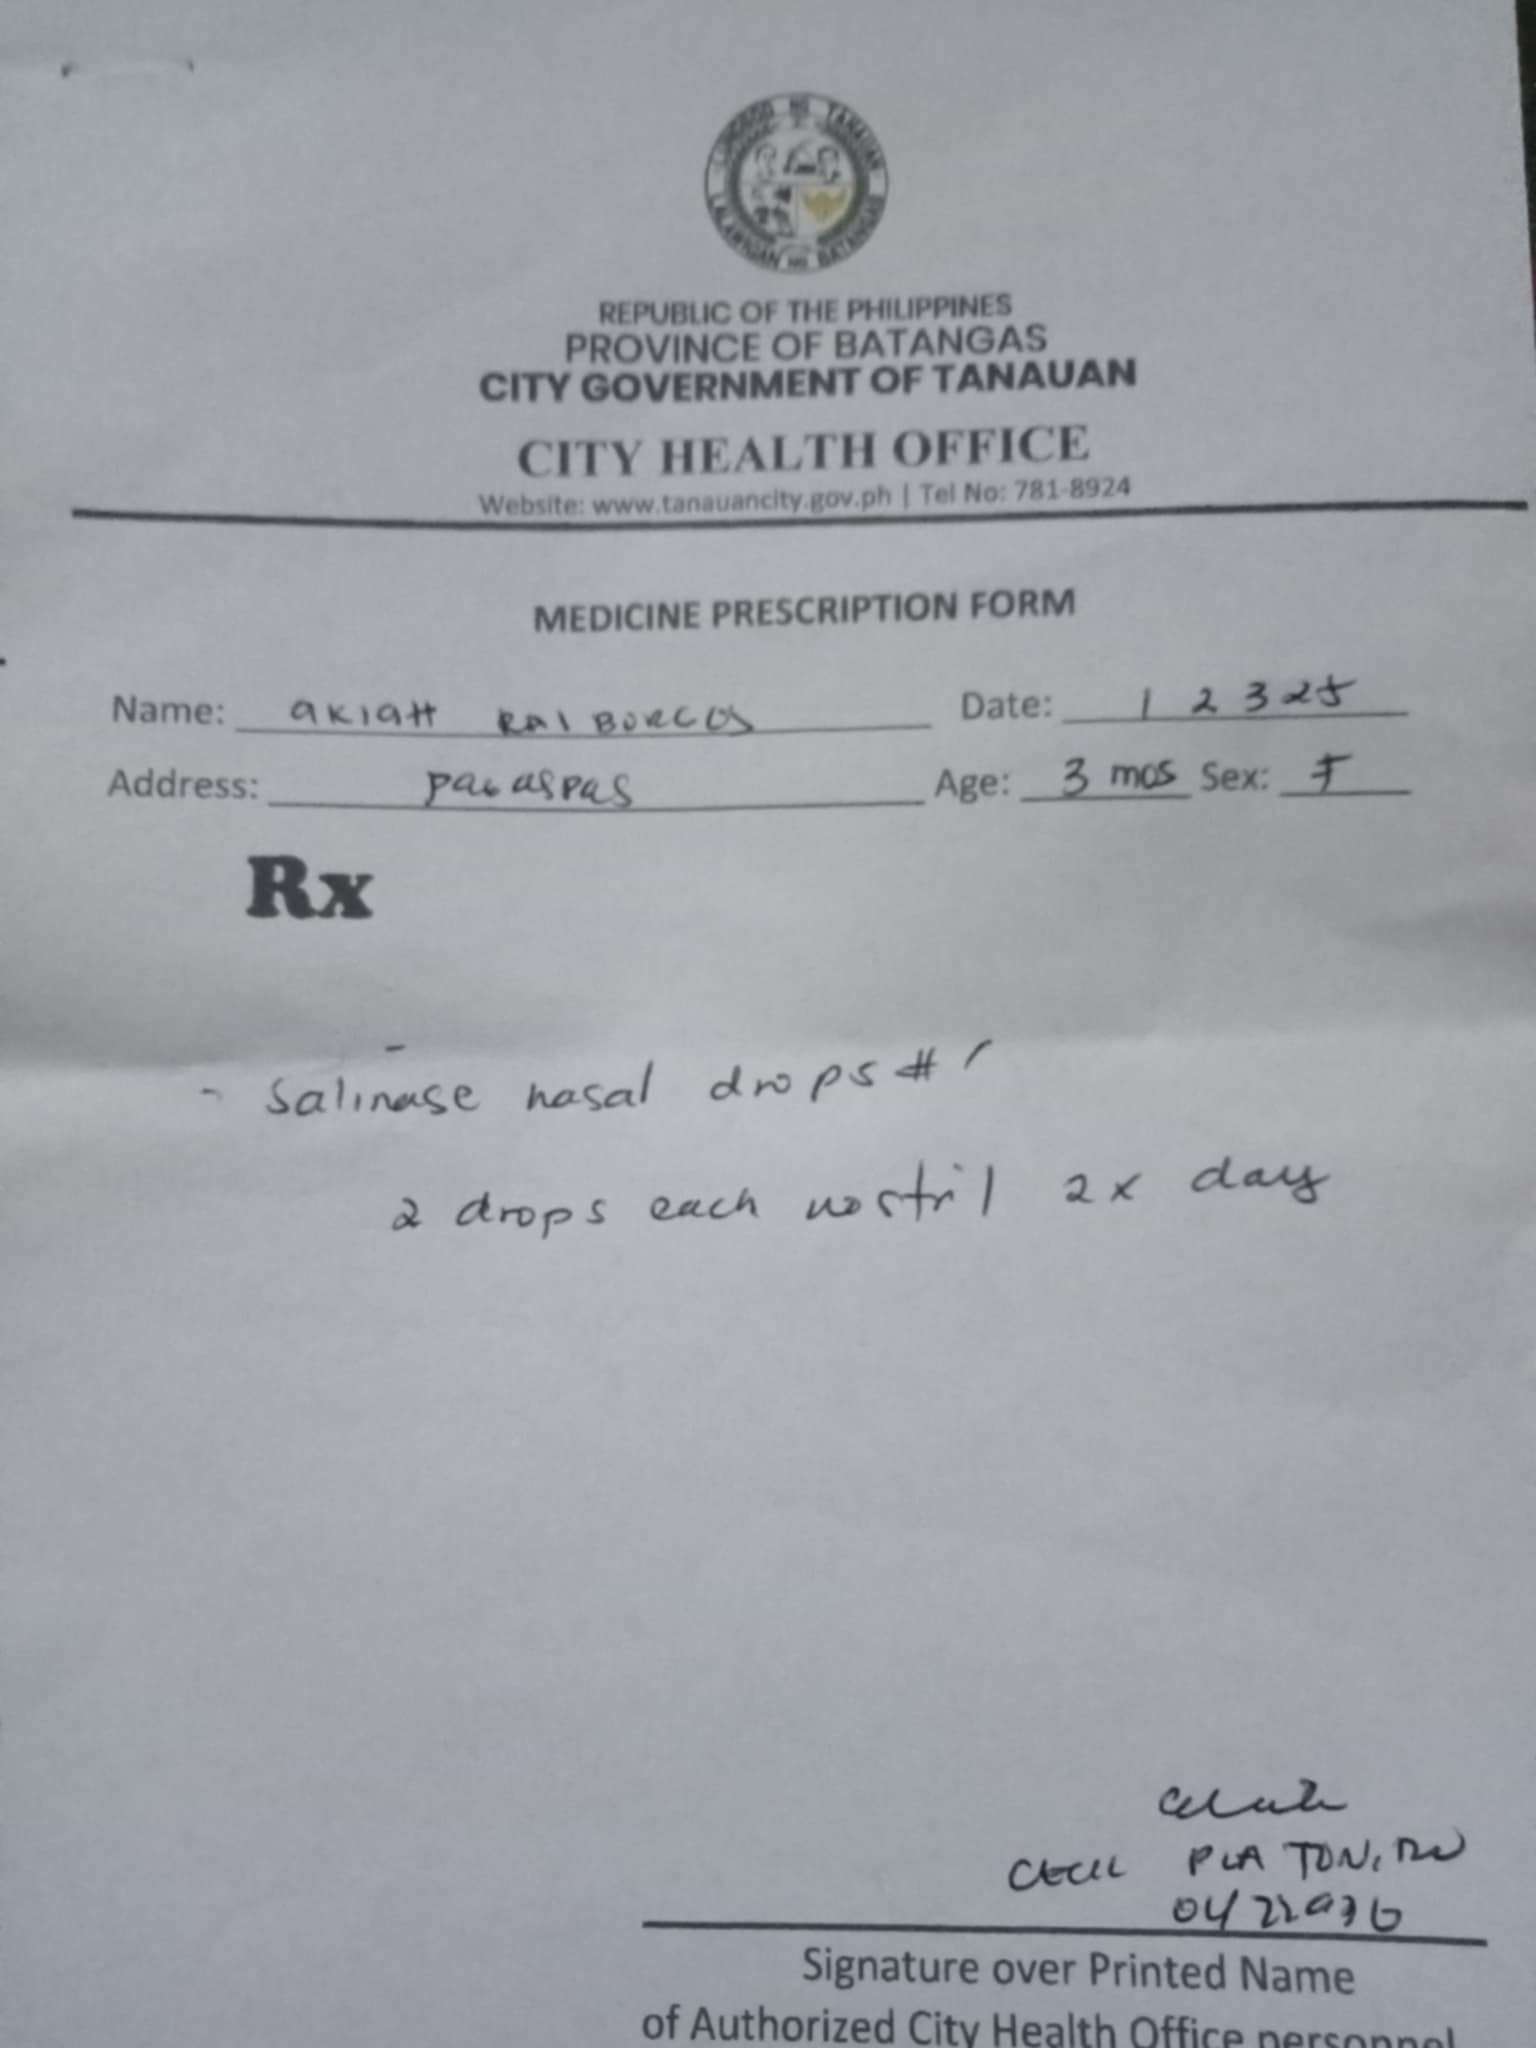 LUNGSOD NG TANAUAN
LALAWIGAN NG BATANGAS
REPUBLIC OF THE PHILIPPINES
PROVINCE OF BATANGAS
CITY GOVERNMENT OF TANAUAN
CITY HEALTH OFFICE
Website: www.tanauancity.gov.ph | Tel No: 781-8924
MEDICINE PRESCRIPTION FORM
Name: AKIAH RAI BURGOS Date: 1 2 3 25
Address: Pagaspas Age: 3 mos Sex: F
Rx
- Salinase nasal drops #1
2 drops each nostril 2x day
CECIL PLATON, RN
Signature over Printed Name
of Authorized City Health Office personnel